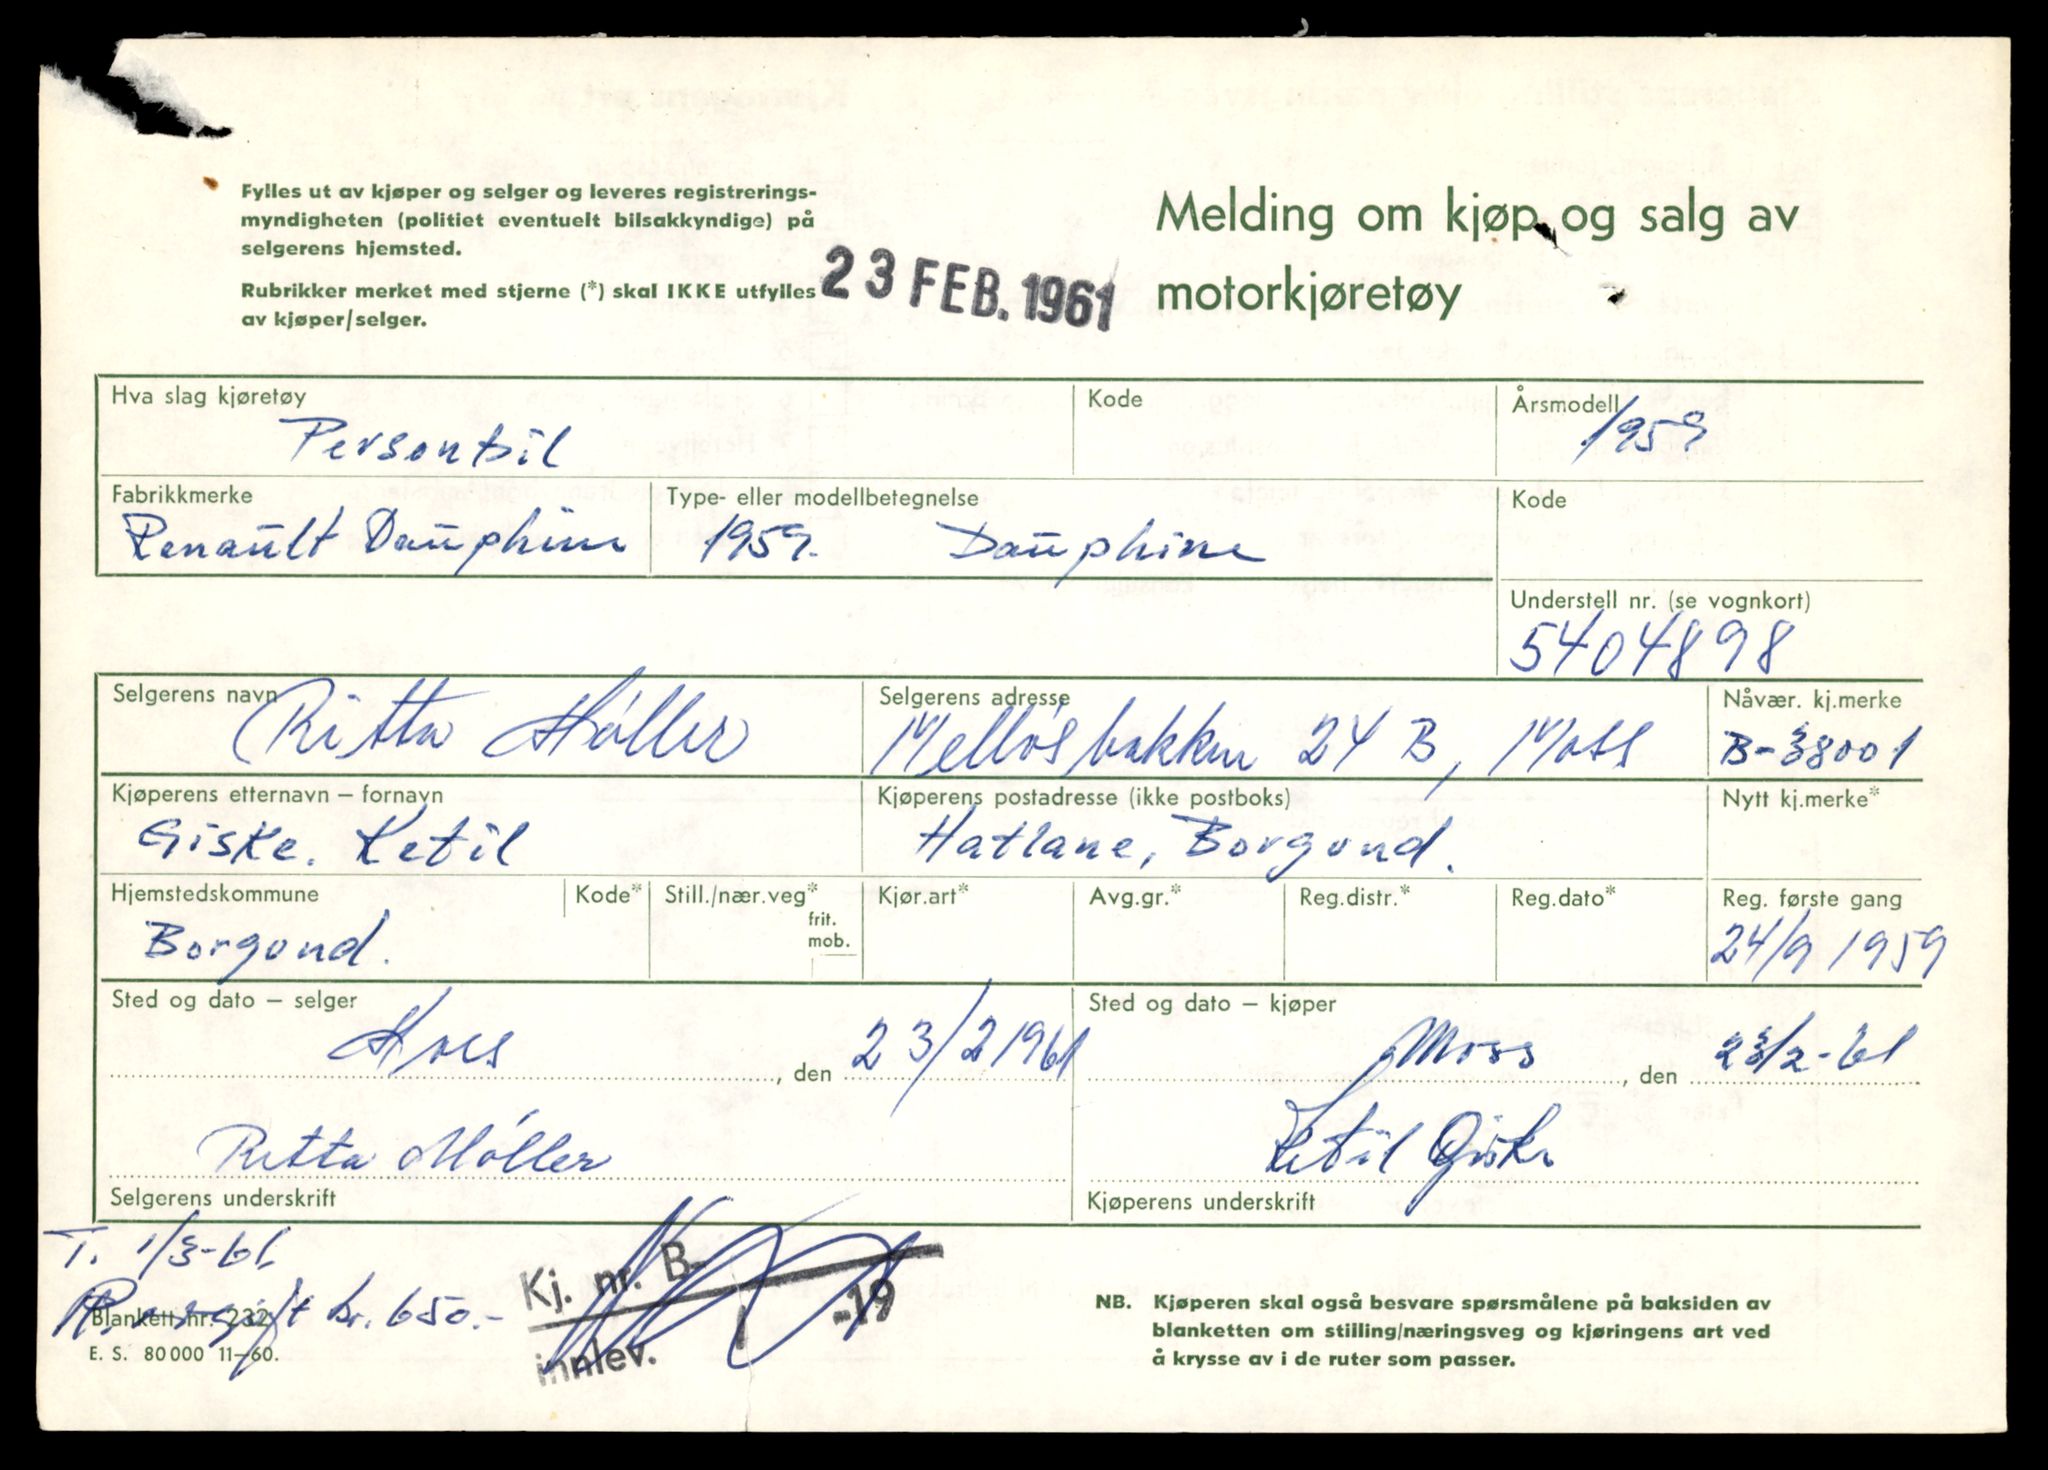 Fylles ut av kjøper og selger og leveres registrerings-
myndigheten (politiet eventuelt bilsakkyndige) på
selgerens hjemsted.
Rubrikker merket med stjerne (*) skal IKKE utfylles
av kjøper/selger.
23 FEB. 1961
Melding om kjøp og salg av
motorkjøretøy
Hva slag kjøretøy
Personbil
Kode
Årsmodell
1959
Fabrikkmerke
Renault Dauphine
Type- eller modellbetegnelse
1959. Dauphine
Kode
Understell nr. (se vognkort)
5404898
Selgerens navn
Ritta Møller
Selgerens adresse
Melløsbakken 24 B, Moss
Nåvær. kj.merke
B-38001
Kjøperens etternavn – fornavn
Giske. Ketil
Kjøperens postadresse (ikke postboks)
Hatlane, Borgund.
Nytt kj.merke*
Hjemstedskommune
Borgund.
Kode*
Still./nær.veg*
frit.
mob.
Kjør.art*
Avg.gr.*
Reg.distr.*
Reg.dato*
Reg. første gang
24/9 1959
Sted og dato – selger
Moss, den 23/2 1961
Sted og dato – kjøper
Moss, den 23/2-61
Ritta Møller
Selgerens underskrift
Ketil Giske
Kjøperens underskrift
T. 1/3-61
kr. 650.-
Blankett nr. 232
E. S. 80 000 11-60.
Kj. nr. B-
innlev. / -19
NB. Kjøperen skal også besvare spørsmålene på baksiden av
blanketten om stilling/næringsveg og kjøringens art ved
å krysse av i de ruter som passer.